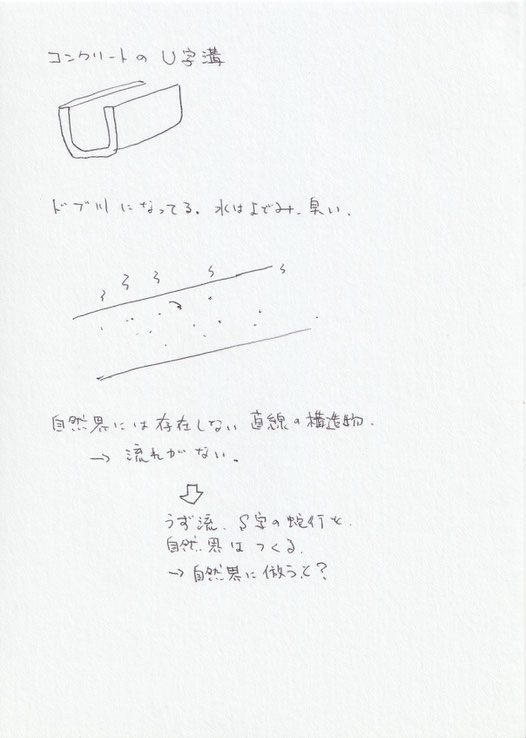 コンクリートの U字溝
ドブ川になってる。水はよどみ、臭い、
自然界には存在しない直線の構造物、
→ 流れがない。
うず流、S字の蛇行を、
自然界はつくる、
→ 自然界に倣うと?